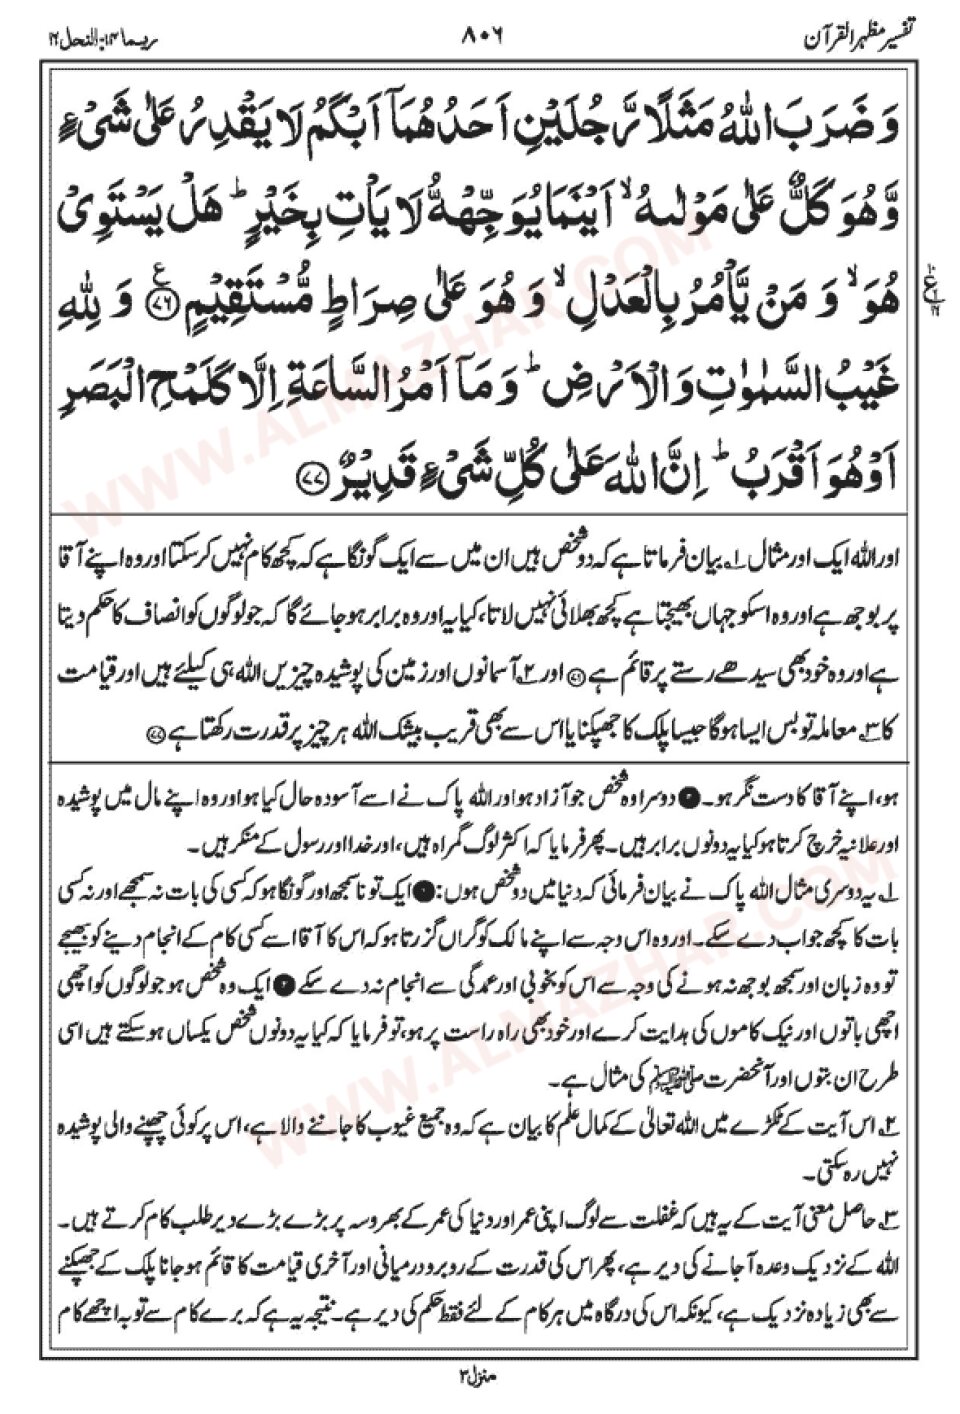 تفسیر مظہر القرآن
۸۰۶
ربما ۱۴: النحل ۱۶
وَضَرَبَ اللّٰهُ مَثَلًا رَّجُلَیْنِ اَحَدُهُمَاۤ اَبْكَمُ لَا یَقْدِرُ عَلٰی شَیْءٍ
وَّهُوَ كَلٌّ عَلٰی مَوْلٰىهُ ۙ اَیْنَمَا یُوَجِّهْهُّ لَا یَاْتِ بِخَیْرٍ ؕ هَلْ یَسْتَوِیْ
هُوَ ۙ وَ مَنْ یَّاْمُرُ بِالْعَدْلِ ۙ وَ هُوَ عَلٰی صِرَاطٍ مُّسْتَقِیْمٍ ﴿۷۶﴾ وَ لِلّٰهِ
غَیْبُ السَّمٰوٰتِ وَ الْاَرْضِ ؕ وَ مَاۤ اَمْرُ السَّاعَةِ اِلَّا كَلَمْحِ الْبَصَرِ
اَوْ هُوَ اَقْرَبُ ؕ اِنَّ اللّٰهَ عَلٰی كُلِّ شَیْءٍ قَدِیْرٌ ﴿۷۷﴾
اور اللہ ایک اور مثال ۱ بیان فرماتا ہے کہ دو شخص ہیں ان میں سے ایک گونگا ہے کہ کچھ کام نہیں کر سکتا اور وہ اپنے آقا
پر بوجھ ہے اور وہ اسکو جہاں بھیجتا ہے کچھ بھلائی نہیں لاتا، کیا یہ اور وہ برابر ہو جائے گا کہ جو لوگوں کو انصاف کا حکم دیتا
ہے اور وہ خود بھی سیدھے رستے پر قائم ہے ﴿۷۶﴾ اور ۲ آسمانوں اور زمین کی پوشیدہ چیزیں اللہ ہی کیلئے ہیں اور قیامت
کا ۳ معاملہ تو بس ایسا ہوگا جیسا پلک کا جھپکنا یا اس سے بھی قریب بیشک اللہ ہر چیز پر قدرت رکھتا ہے ﴿۷۷﴾
ہو، اپنے آقا کا دست نگر ہو۔ ۲ دوسرا وہ شخص جو آزاد ہو اور اللہ پاک نے اسے آسودہ حال کیا ہو اور وہ اپنے مال میں پوشیدہ
اور علانیہ خرچ کرتا ہو کیا یہ دونوں برابر ہیں۔ پھر فرمایا کہ اکثر لوگ گمراہ ہیں، اور خدا اور رسول کے منکر ہیں۔
۱ یہ دوسری مثال اللہ پاک نے بیان فرمائی کہ دنیا میں دو شخص ہوں: ۱ ایک تو نا سمجھ اور گونگا ہو کہ کسی کی بات نہ سمجھے اور نہ کسی
بات کا کچھ جواب دے سکے۔ اور وہ اس وجہ سے اپنے مالک کو گراں گزرتا ہو کہ اس کا آقا اسے کسی کام کے انجام دینے کو بھیجے
تو وہ زبان اور سمجھ بوجھ نہ ہونے کی وجہ سے اس کو بخوبی اور عمدگی سے انجام نہ دے سکے ۲ ایک وہ شخص ہو جو لوگوں کو اچھی
اچھی باتوں اور نیک کاموں کی ہدایت کرے اور خود بھی راہ راست پر ہو، تو فرمایا کہ کیا یہ دونوں شخص یکساں ہو سکتے ہیں اسی
طرح ان بتوں اور آنحضرت ﷺ کی مثال ہے۔
۲ اس آیت کے ٹکڑے میں اللہ تعالیٰ کے کمال علم کا بیان ہے کہ وہ جمیع غیوب کا جاننے والا ہے، اس پر کوئی چھپنے والی پوشیدہ
نہیں رہ سکتی۔
۳ حاصل معنی آیت کے یہ ہیں کہ غفلت سے لوگ اپنی عمر اور دنیا کی عمر کے بھروسہ پر بڑے بڑے دیر طلب کام کرتے ہیں۔
اللہ کے نزدیک وعدہ آ جانے کی دیر ہے، پھر اس کی قدرت کے روبرو درمیانی اور آخری قیامت کا قائم ہو جانا پلک کے جھپکنے
سے بھی زیادہ نزدیک ہے، کیونکہ اس کی درگاہ میں ہر کام کے لئے فقط حکم کی دیر ہے۔ نتیجہ یہ ہے کہ برے کام سے توبہ اچھے کام
منزل ۳
WWW.ALMAZHAR.COM
WWW.ALMAZHAR.COM